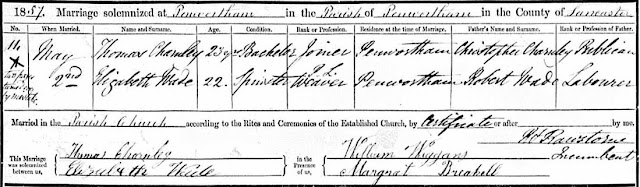 1857. Marriage solemnized at Penwortham in the Parish of Penwortham in the County of Lancaster
No. When Married. Name and Surname. Age. Condition. Rank or Profession. Residence at the time of Marriage. Father's Name and Surname. Rank or Profession of Father.
May Thomas Charnley 23 yrs Bachelor Joiner Penwortham Christopher Charnley Publican
2nd Elizabeth Wade 22. Spinster Weaver Penwortham Robert Wade Labourer
Married in the Parish Church according to the Rites and Ceremonies of the Established Church, by Certificate or after by me,
Incumbent
This Marriage was solemnized between us, Thomas Charnley in the Presence of us, William Wiggans
Elizabeth Wade Margrat Breakell